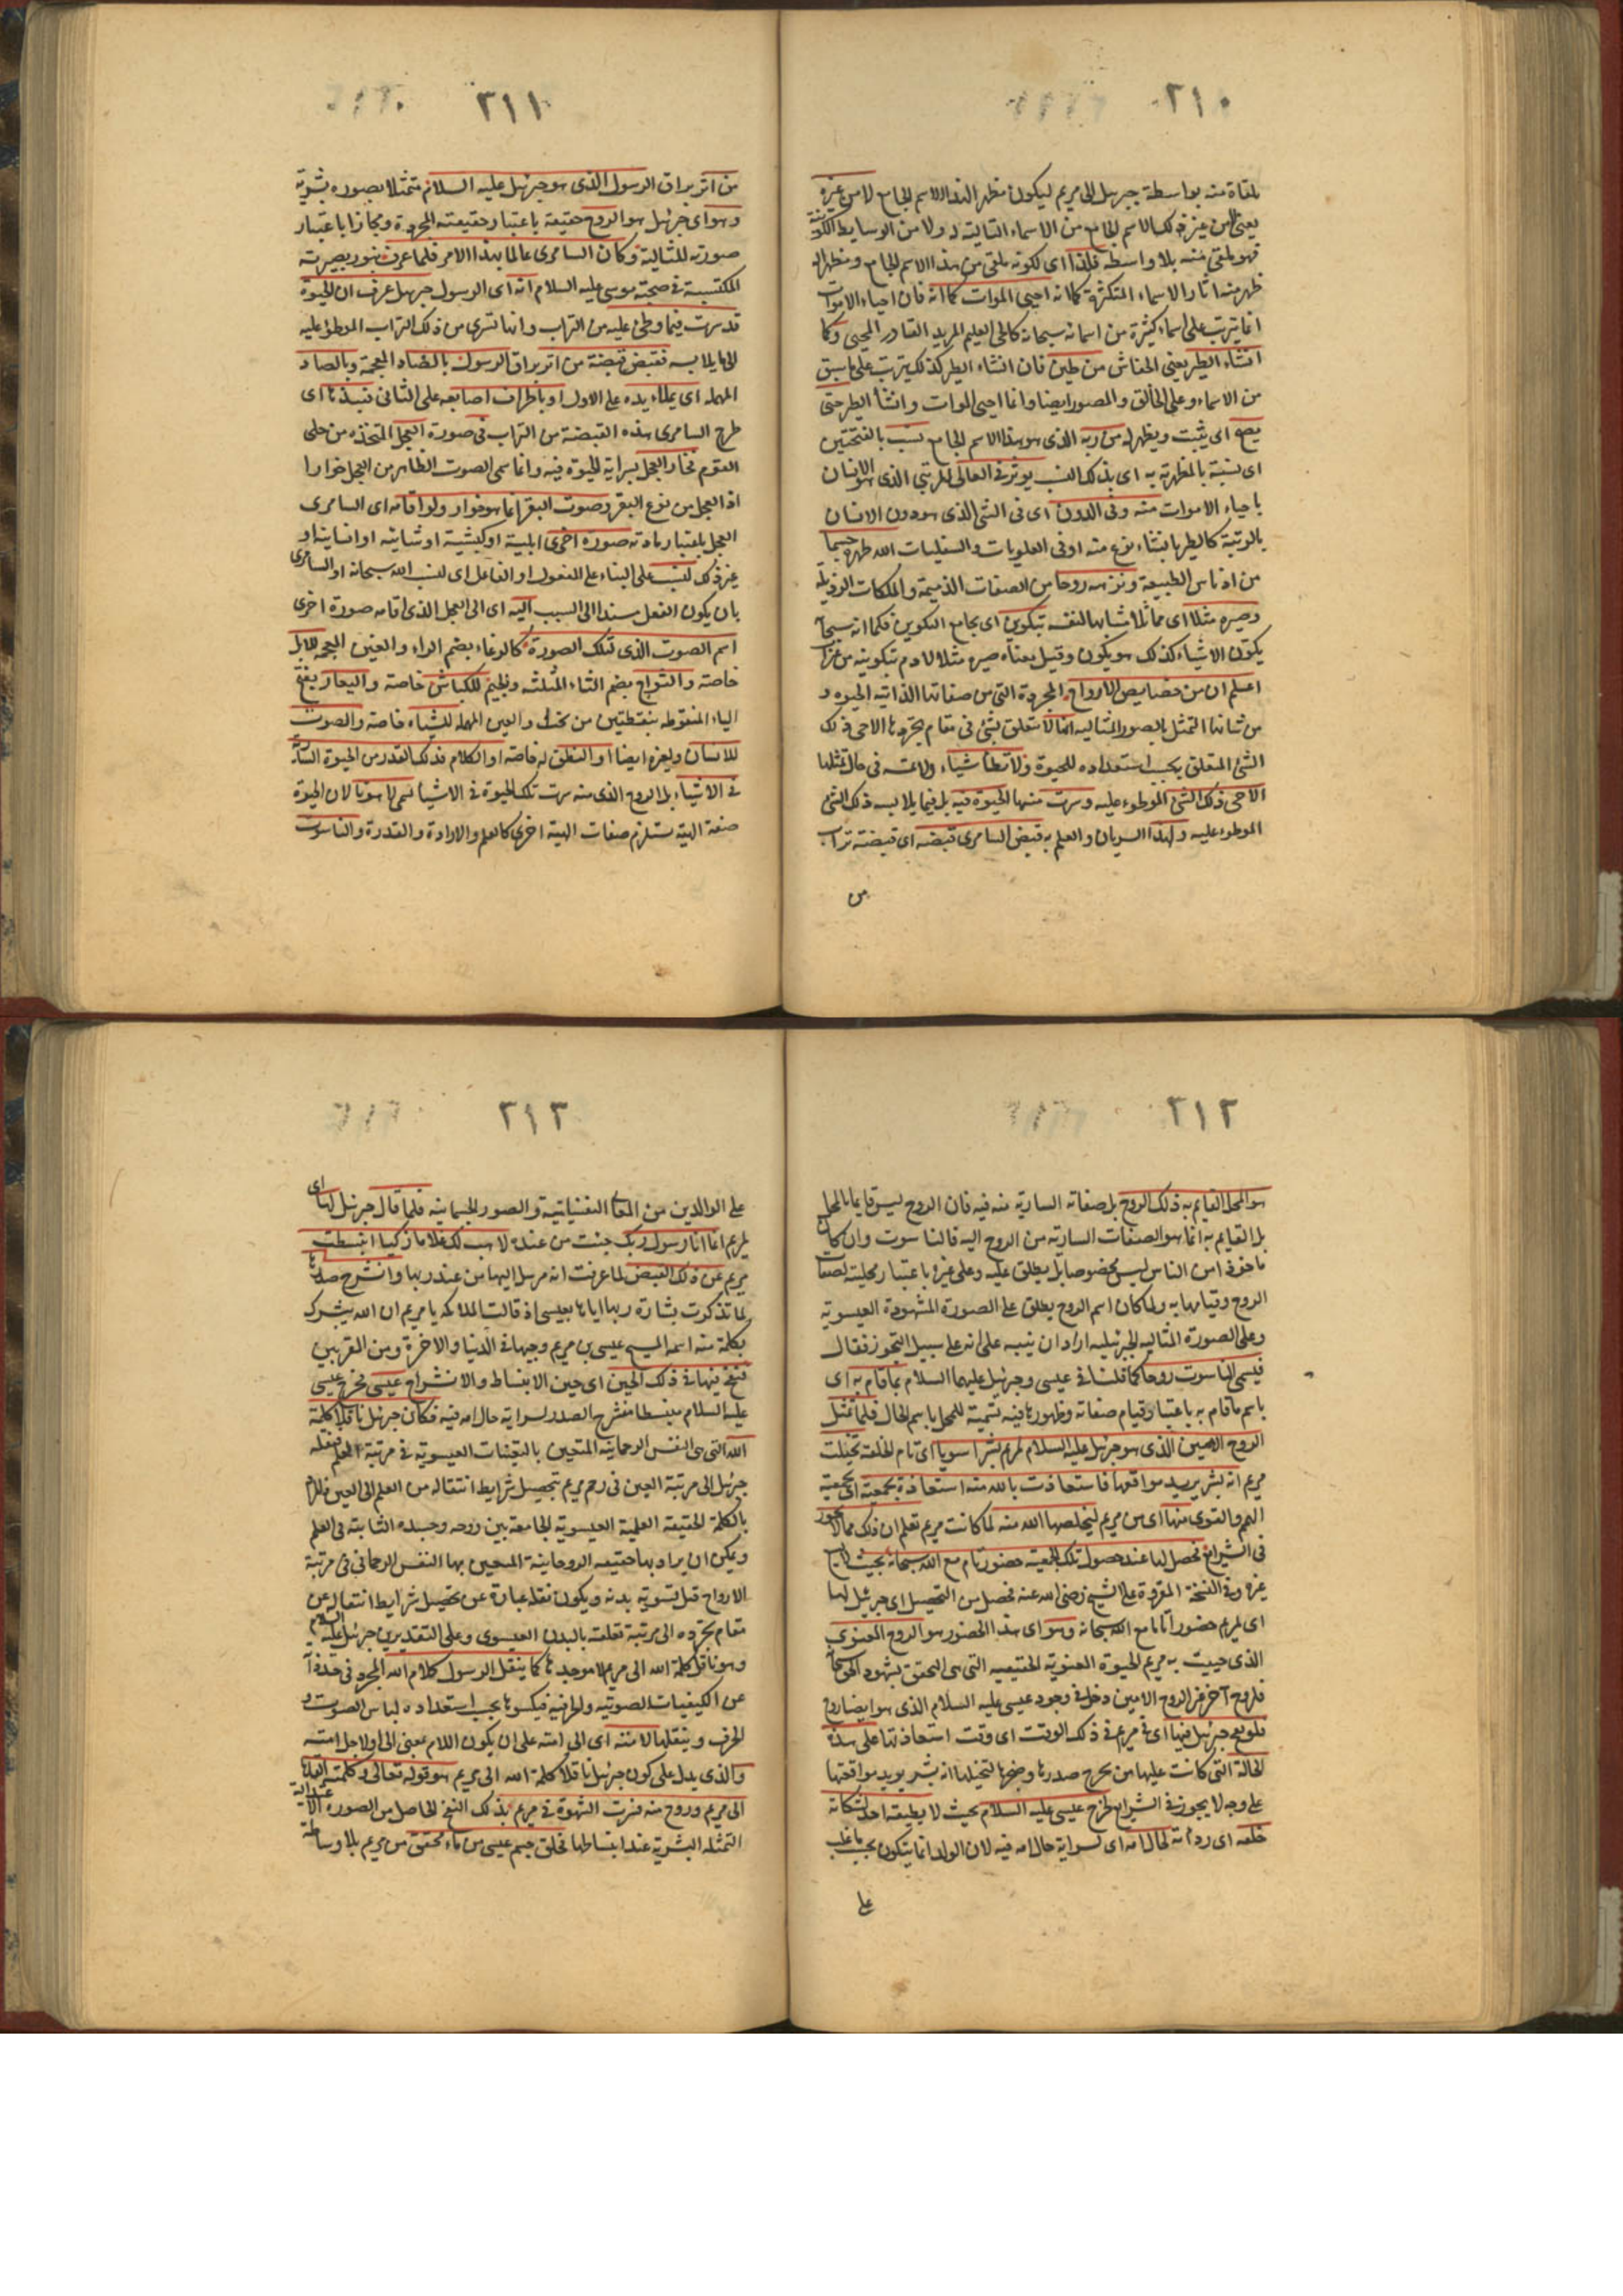 ٢١٠
ملقاة منه بواسطة جبرئيل الى مريم ليكون مظهر الهذا الاسم الجامع لا من غيره
يعنى لا من غير ذلك الاسم الجامع من الاسماء التالية له ولا من الوسايط الكونية
فهو ملقى منه بلا واسطة فلذا اى لكونه ملقى من هذا الاسم الجامع ومظهرا له
ظهر منه اثار الاسماء المتكثرة كما انه احيى الموات كما انه فان احياء الاموات
انما يترتب على اسماء كثيرة من اسمائه سبحانه كالحى العليم المريد القادر المحيى وكما
انشاء الطير يعنى الخفاش من طين فان انشاء الطير كذلك يترتب على ما سبق
من الاسماء وعلى الخالق والمصور ايضا وانما احيى الموات وانشأ الطير حتى
يصح اى يثبت ويظهر له من ربه الذى هو هذا الاسم الجامع نسب بالفتحتين
اى نسبة بالمظهرية به اى بذلك النسب يوثر فى العالى المرتبى الذى هو الانسان
باحياء الاموات منه وفى الدون اى فى الشئ الذى هو دون الانسان
بالرتبة كالطير بانشاء نوع منه او فى العلويات والسفليات الله طهره جسما
من ادناس الطبيعة ونزهه روحا من الصفات الذميمة والملكات الرذيلة
وصيره مثلا اى مماثلا مشابها لنفسه بتكوين اى بجامع التكوين فكما انه سبحانه
يكون الاشياء كذلك هو يكون وقيل معناه صيره مثلا لادم بتكوينه من غير اب
اعلم ان من خصايص الارواح المجردة التى من صفاتها الذاتية الحيوة و
من شانها التمثل بالصور المثالية انها لا تتعلق بشئ فى مقام تجردها الا حى ذلك
الشئ المتعلق بحسب استعداده للحيوة ولا تطأ شياء ولا تمسه فى حال تمثلها
الا حى ذلك الشئ الموطوء عليه وسرت منها الحيوة فيه بل فيما يلابسه ذلك الشئ
الموطوء عليه ولهذا السريان والعلم به قبض السامرى قبضة اى قبضة تراب
من
٢١١
من اثر براق الرسول الذى هو جبرئيل عليه السلام متمثلا بصورة بشرية
وهو اى جبرئيل هو الروح حقيقة باعتبار حقيقته المجردة ومجازا باعتبار
صورته المثالية وكان السامرى عالما بهذا الامر فلما عرف بنور بصيرته
المكتسبة فى صحبة موسى عليه السلام انه اى الرسول جبرئيل عرف ان الحيوة
قد سرت فيما وطئ عليه من التراب وانها تسرى من ذلك التراب الموطؤ عليه
الى ما يلابسه فقبض قبضة من اثر براق الرسول بالضاد المعجمة وبالصاد
المهملة اى بملاء يده على الاول او باطراف اصابعه على الثانى فنبذها اى
طرح السامرى هذه القبضة من التراب فى صورة العجل المتخذة من حلى
القوم فخار العجل بسراية الحيوة فيه وانما سمى الصوت الظاهر من العجل خوارا
اذ العجل من نوع البقر وصوت البقر انما هو خوار ولو اقامه اى السامرى
العجل باعتبار مادته صورة اخرى ابلية او كبشية او شاتية او انسانية او
غير ذلك لنسب على البناء على المفعول او الفاعل اى لنسب الله سبحانه او السامرى
بان يكون الفعل مسندا الى السبب اليه اى الى العجل الذى اقامه صورة اخرى
اسم الصوت الذى لتلك الصورة كالرغاء بضم الراء والغين المعجمة للابل
خاصة والثواج بضم الثاء المثلثة والجيم للكباش خاصة واليعار بفتح
الياء المنقوطة بنقطتين من تحت والعين المهملة للشياه خاصة والصوت
للانسان ولغيره ايضا او النطق له خاصة او الكلام فذلك القدر من الحيوة السارية
فى الاشياء بل الروح الذى منه سرت تلك الحيوة فى الاشيا يسمى لاهوتا لان الحيوة
صفة الهية تستلزم صفات الهية اخرى كالعلم والارادة والقدرة والناسوت
٢١٢
هو المحل القايم به ذلك الروح بل صفاته السارية منه فيه فان الروح ليس قايما بالمحل
بل القايم به انما هو الصفات السارية من الروح اليه فالناسوت وان كان
ماخوذا من الناس ليس مخصوصا بل يطلق عليه وعلى غيره باعتبار محليته لصفات
الروح وقيامها به ولما كان اسم الروح يطلق على الصورة المشهودة العيسوية
وعلى الصورة المثالية الجبرئيلية اراد ان ينبه على انه على سبيل التجوز فقال
فيسمى الناسوت روحا كما قلنا فى عيسى وجبرئيل عليهما السلام بما قام به اى
باسم ما قام به باعتبار قيام صفاته وظهورها فيه تسمية للمحل باسم الحال فلما تمثل
الروح الامين الذى هو جبرئيل عليه السلام لمريم بشرا سويا اى تام الخلقة تخيلت
مريم انه بشر يريد مواقعتها فاستعاذت بالله منه استعاذة بجمعية اى بجمعية
الهمم والقوى منها اى من مريم ليخلصها الله منه لما كانت مريم تعلم ان ذلك مما لا يجوز
فى الشرايع فحصل لها عند حصول تلك الجمعية حضور تام مع الله سبحانه بحيث
غيره وفى النسخة المقروة على الشيخ رضى الله عنه فحصل من التحصيل اى جبرئيل لها
اى لمريم حضورا تاما مع الله سبحانه وهو اى هذا الحضور هو الروح المعنوى
الذى حييت به مريم الحيوة المعنوية الحقيقية التى هى التحقق بشهود الحق سبحانه
فلروح اخر غير الروح الامين دخل فى وجود عيسى عليه السلام الذى هو ايضا روح
فلو نفخ جبرئيل فيها اى فى مريم فى ذلك الوقت اى وقت استعاذتها على هذه
الحالة التى كانت عليها من تحرج صدرها وضجرها لتخيلها انه بشر يريد مواقعتها
على وجه لا يجوز فى الشرايع لخرج عيسى عليه السلام بحيث لا يطيقه احد لشكاسة
خلقه اى رداءته لحال امه اى لسراية حال امه فيه لان الولد انما يتكون بحسب ما غلب
على
٢١٣
على الوالدين من المعانى النفسانية والصور الجسمانية فلما قال جبرئيل لها اى
لمريم انما انا رسول ربك جئت من عنده لاهب لك غلاما زكيا انبسطت
مريم عن ذلك القبض لما عرفت انه مرسل اليها من عند ربها وانشرح صدرها
لما تذكرت بشارة ربها اياها بعيسى اذ قالت الملائكة يا مريم ان الله يبشرك
بكلمة منه اسمه المسيح عيسى بن مريم وجيها فى الدنيا والاخرة ومن المقربين
فنفخ فيها فى ذلك الحين اى حين الانبساط والانشراح عيسى فخرج عيسى
عليه السلام منبسطا منشرح الصدر لسراية حال امه فيه فكان جبرئيل ناقلا كلمة
الله التى هى النفس الرحمانية المتعين بالتعينات العيسوية فى مرتبة العلم فنقله
جبرئيل الى مرتبة العين فى رحم مريم بتحصيل شرايط انتقاله من العلم الى العين فالمراد
بالكلمة الحقيقة العلمية العيسوية الجامعة بين روحه وجسده الثابتة فى العلم
ويمكن ان يراد بها حقيقته الروحانية المتعين بها النفس الرحمانى فى مرتبة
الارواح قبل تسوية بدنه ويكون نقله عبارة عن تحصيل شرايط انتقاله عن
مقام تجرده الى مرتبة تعلقه بالبدن العيسوى وعلى التقديرين جبرئيل عليه السلام
وهو ناقل كلمة الله الى مريم لا موجدها كما ينقل الرسول كلام الله المجرد فى حد ذاته
عن الكيفيات الصوتية والحرفية فيكسوها بحسب استعداده لباس الصوت و
الحرف وينقلها لامته اى الى امته على ان يكون اللام بمعنى الى او لاجل امته
والذى يدل على كون جبرئيل ناقلا كلمة الله الى مريم هو قوله تعالى وكلمته القاها
الى مريم وروح منه فسرت الشهوة فى مريم بذلك النفخ الحاصل من الصورة
التمثلة البشرية عند انبساطها فخلق جسم عيسى من ماء محقق من مريم بلا وساطة